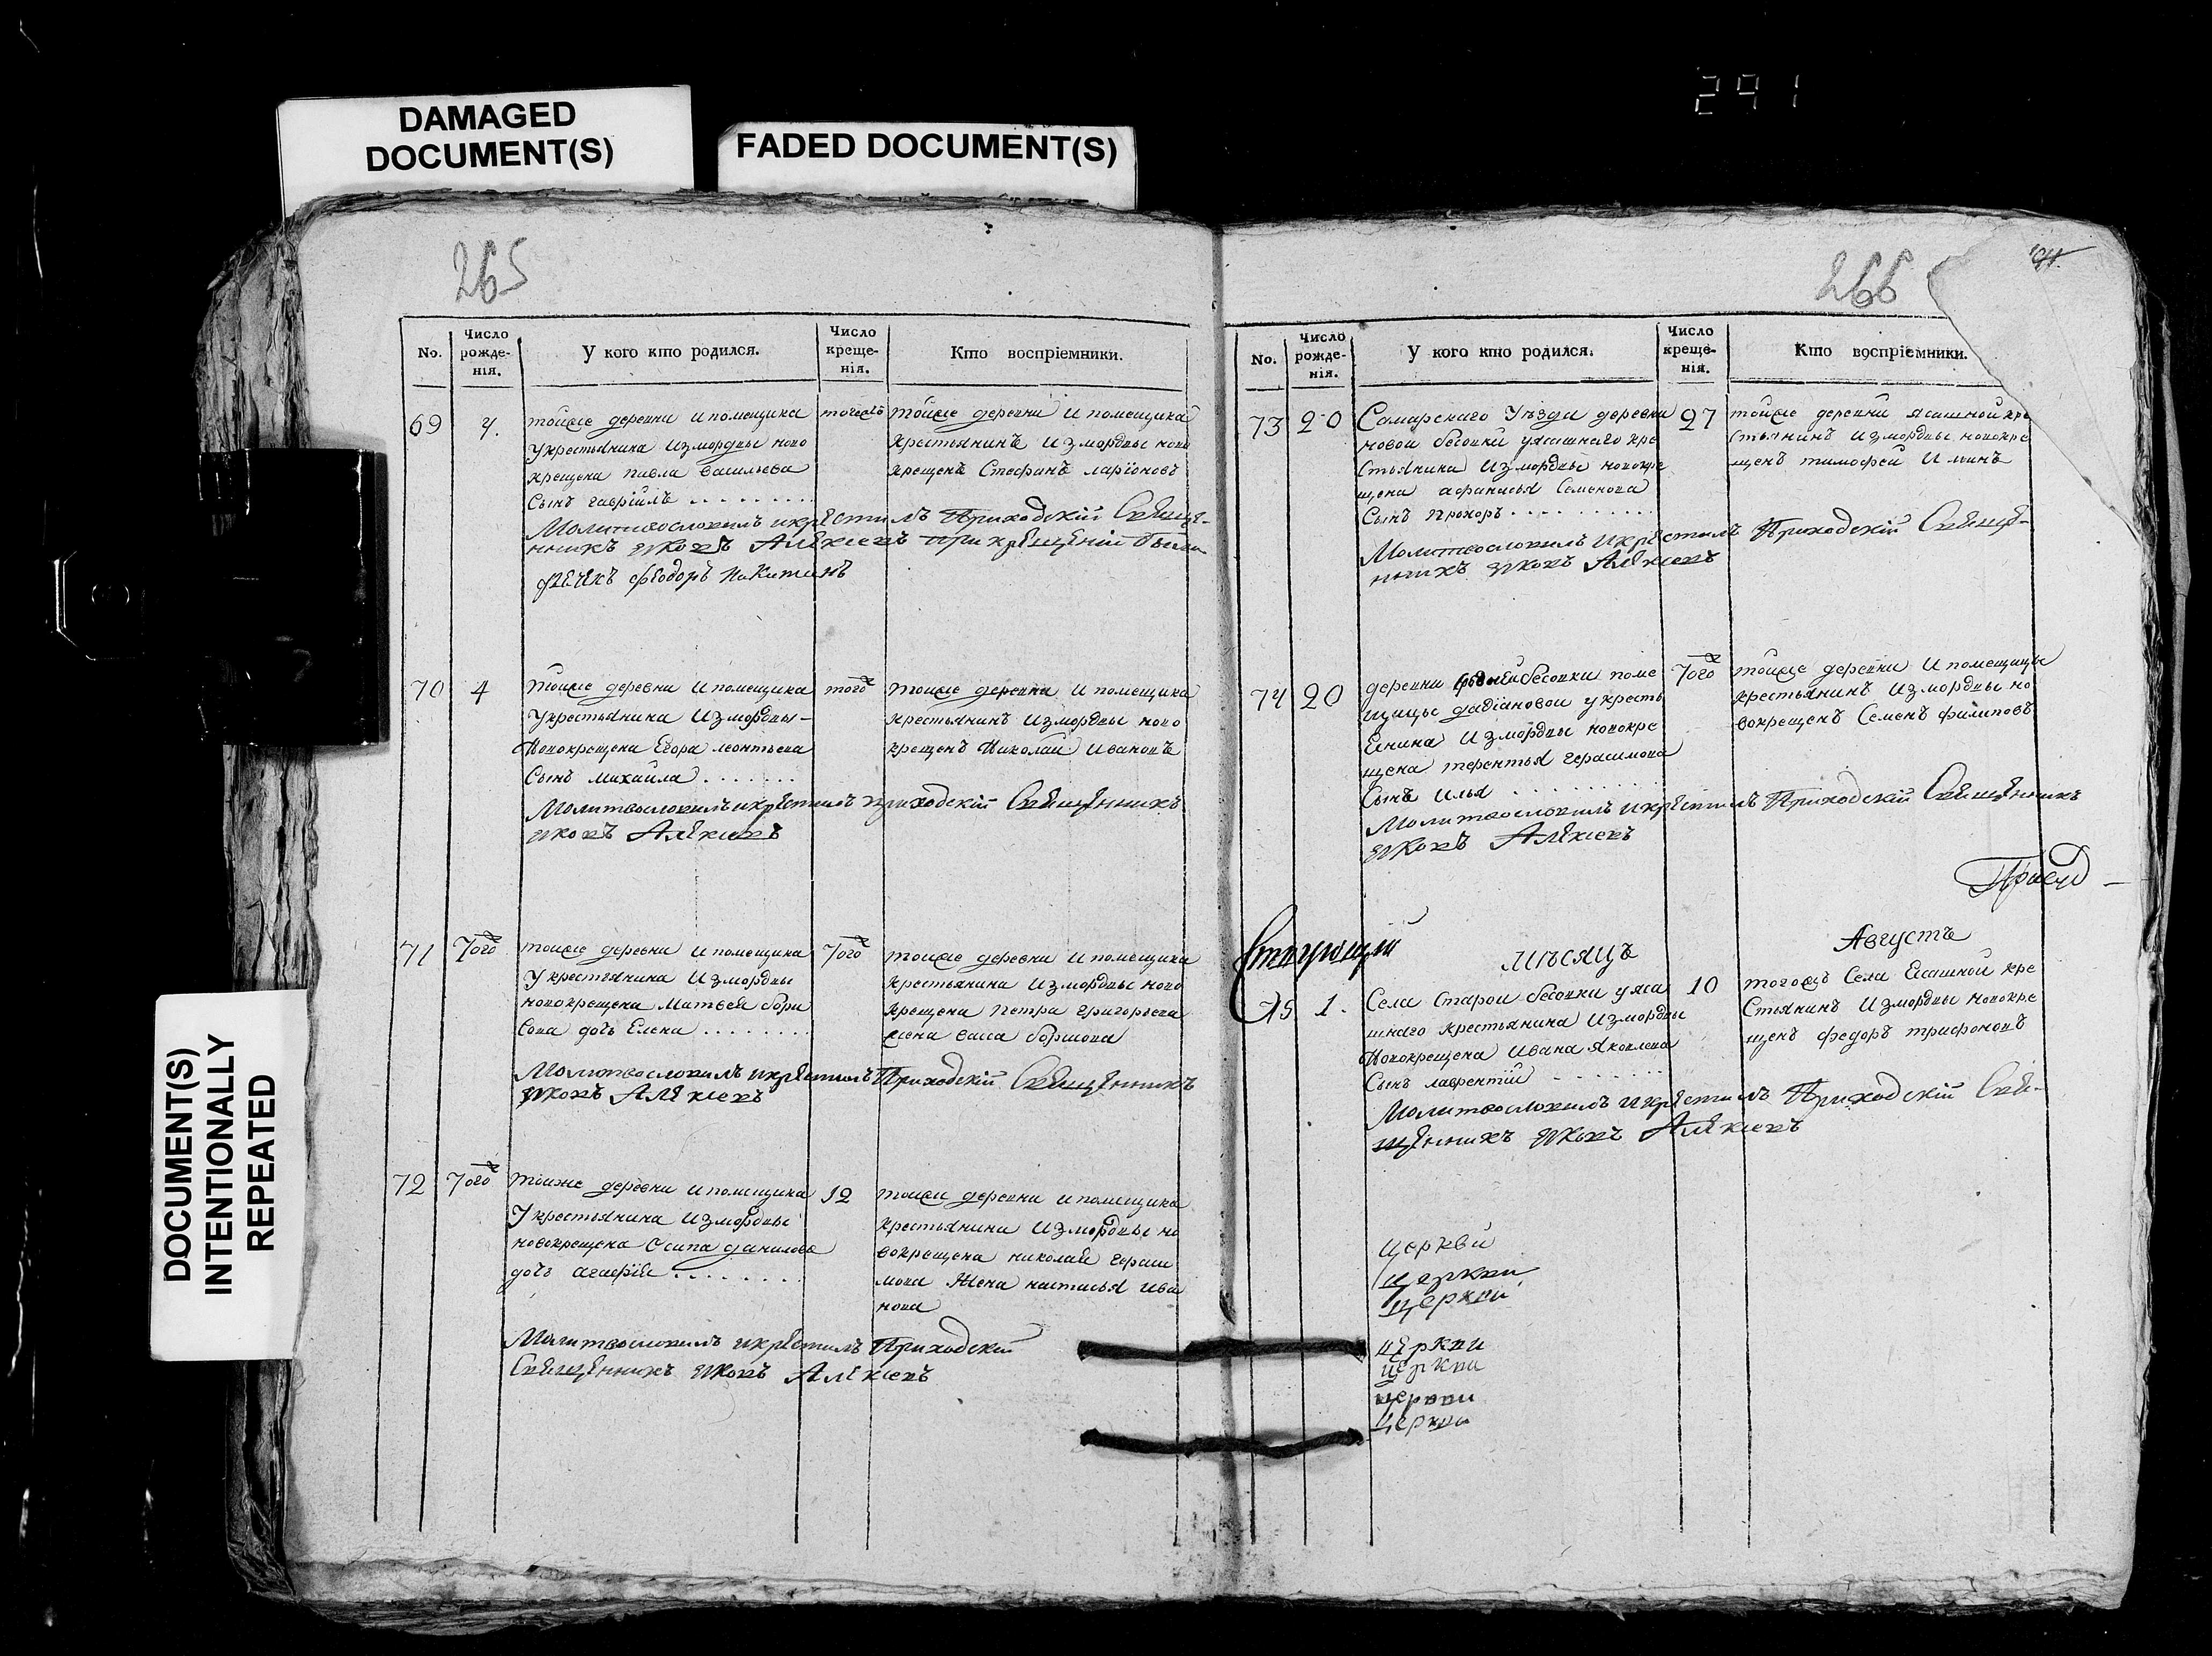 291
DAMAGED
DOCUMENT(S)
FADED DOCUMENT(S)
DOCUMENT(S)
INTENTIONALLY
REPEATED
265
No.
Число
рожде-
нія.
У кого кто родился.
Число
креще-
нія.
Кто воспріемники.
69
4.
тойже деревни и помещика
Укрестьянина измордвы ново
крещена павла васильева
Сынъ гаврійлъ . . . . . . . . .
тойже деревни и помещика
крестьянинъ измордвы ново
крещенъ Стефанъ ларіоновъ
Молитвословилъ икрѣстилъ Приходскій Свѣще-
нникъ Яковъ Алѣксѣевъ при крѣщеніи были
Фѣодоръ Никитинъ
70
4
тойже деревни и помещика
Укрестьянина измордвы
новокрещена Егора леонтьева
Сынъ михайла . . . . . . .
того
тойже деревни и помещика
крестьянинъ измордвы ново
крещенъ Николай ивановъ
Молитвословилъ икрѣстилъ приходскій Свѣщѣнникъ
Яковъ Алѣксѣевъ
71
Того
тойже деревни и помещика
Укрестьянина измордвы
новокрещена Матвея бори
сова дочь Елена . . . . . . . .
Того
тойже деревни и помещика
крестьянина измордвы ново
крещена петра григорьева
жена васса
Молитвословилъ икрѣстилъ Приходскій Свѣщѣнникъ
Яковъ Алѣксѣевъ
72
Того
тойже деревни и помещика
Укрестьянина измордвы
новокрещена Осипа данилова
дочь агафія . . . . . . . .
12
тойже деревни и помещика
крестьянина измордвы но
вокрещена николая гераси
мова Жена настасья ива
нова
Молитвословилъ икрѣстилъ Приходскій
Свѣщѣнникъ Яковъ Алѣксѣевъ
266
No.
Число
рожде-
нія.
У кого кто родился.
Число
креще-
нія.
Кто воспріемники.
73
20
Самарскаго Уезда деревни
новой бесовки уясашнаго кре
стьянина измордвы новокре
щена афанасья Семенова
Сынъ прохоръ . . . . . . . . . .
27
тойже деревни ясашной кре
стьянинъ измордвы новокре
щенъ тимофей Ильинъ
Молитвословилъ икрѣстилъ Приходскій Свѣще-
нникъ Яковъ Алѣксѣевъ
74
20
деревни новой бесовки поме
щицы дадіановой укресть
янина измордвы новокре
щена терентья герасимова
Сынъ илья . . . . . . . . .
Того
тойже деревни и помещицы
крестьянинъ измордвы но
вокрещенъ Семенъ филиповъ
Молитвословилъ икрѣстилъ Приходскій Свѣщѣнникъ
Яковъ Алѣксѣевъ
мѣсяцъ
Августъ
75
1.
Села Старой бесовки уяса
шнаго крестьянина измордвы
новокрещена ивана яковлева
Сынъ лаврентій . . . . . . .
10
тогожъ Села Ясашной кре
стянинъ измордвы новокре
щенъ федоръ трифоновъ
Молитвословилъ икрѣстилъ Приходскій Свѣ-
щѣнникъ Яковъ Алѣксѣевъ
Церкви
церкви
церкви
цѣркви
церкви
церкви
церкви